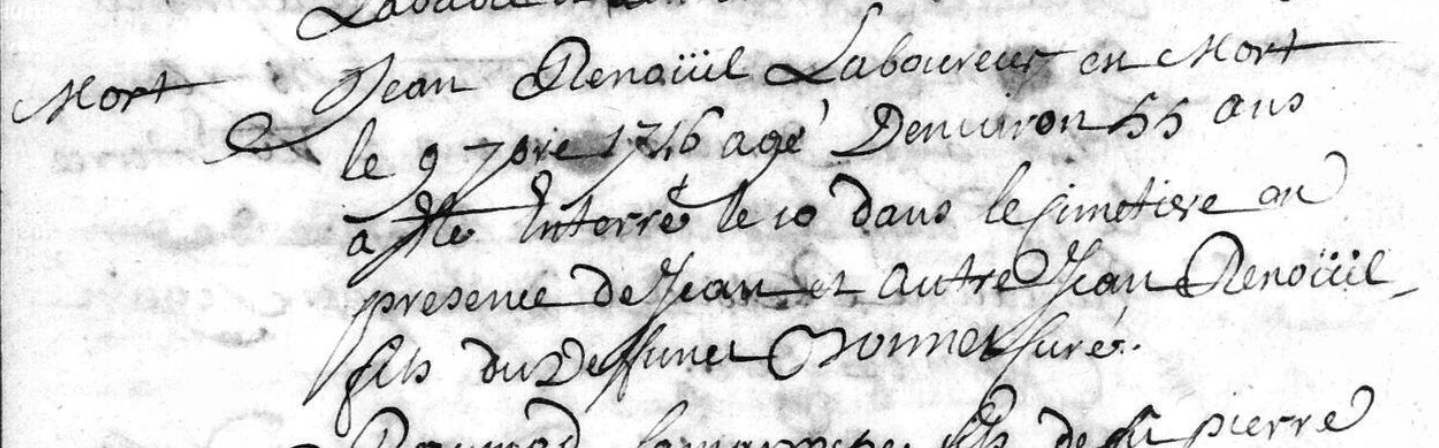 Mort
Jean Renoüil Laboureur en Mort
le 9 7bre 1746 agé Denuiron 55 ans
a esté Enterré le 10 dans le cimetiere en
presence de Jean et autre Jean Renoüil
fils du Deffunct Bonnet Curé.
fils de pierre